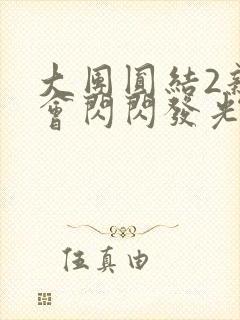 大團圓結2新
會閃閃發光
伍真由